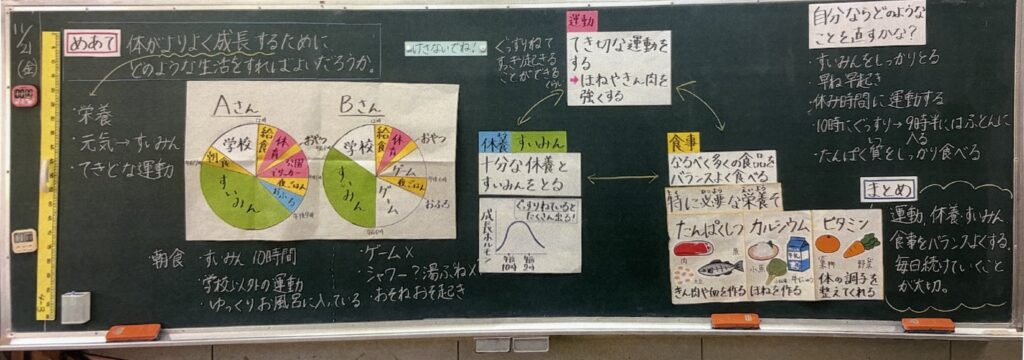 11/21(金)
めあて
体がよりよく成長するために
どのような生活をすればよいだろうか。
・栄養
・元気→すいみん
・てきどな運動
Aさん
学校
給食
体育
おやつ
公園
サッカー
夜ごはん
おふろ
すいみん
朝食
Bさん
学校
給食
体育
おやつ
ゲーム
夜ごはん
おふろ
ゲーム
すいみん
朝食
・すいみん 10時間
・学校以外の運動
・ゆっくりお風呂に入っている
・ゲーム×
・シャワー?湯ふね×
・おそねおそ起き
けさないでね!
ぐっすりねて
すっきり起きる
ことができる
運動
てき切な運動を
する
➡ほねやきん肉を
強くする
休養 すいみん
十分な休養と
すいみんをとる
ぐっすりねていると
たくさん出る!
成長ホルモン
午後10時
食事
なるべく多くの食品を
バランスよく食べる
特に必要な栄養そ
たんぱくしつ
肉
魚
きん肉や血を作る
カルシウム
小魚
牛にゅう
ほねを作る
ビタミン
果物
野菜
体の調子を
整えてくれる
自分ならどのような
ことを直すかな?
・すいみんをしっかりとる
・早ね早起き
・休み時間に運動する
・10時にぐっすり→9時半にはふとんに
入る
・たんぱく質をしっかり食べる
まとめ
運動、休養・すいみん
食事をバランスよくする。
毎日続けていくこと
が大切。